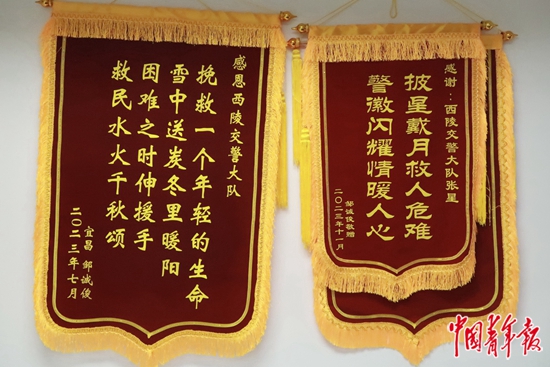 感恩西陵交警大队
挽救一个年轻的生命
雪中送炭冬里暖阳
困难之时伸援手
救民水火千秋颂
宜昌 邹诚俊
二〇二三年七月
感谢：西陵交警大队张星
披星戴月救人危难
警徽闪耀情暖人心
邹诚俊敬赠
二〇二三年十一月
中国青年报